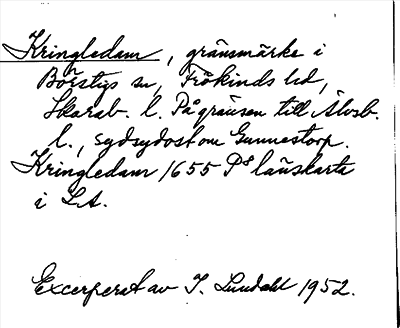 Kringledam, gränsmärke i
Börstigs sn, Frökinds hd,
Skarab. l. På gränsen till Älvsb.
l., sydsydost om Gunnestorp.
Kringledam 1655 På länskarta
i LA.
Excerperat av I. Lundahl 1952.